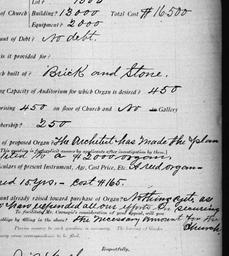 Lot? 1500
of Church Building? 13000 Total Cost $16500
Equipment? 2000
unt of Debt? No debt.
is it provided for?
rch built of? Brick and Stone.
ing Capacity of Auditorium for which Organ is desired? 450
rising 450 on floor of Church and No Gallery
bership? 250
of proposed Organ? The Architect has made the plan
to a $2000 organ.
culars of present Instrument, Age, Cost Price, Etc. A reed organ
15 yrs. - Cost $165.
nt already raised toward purchase of Organ? Nothing as
have expended all our efforts in securing
the necessary amount for the
Church.
Respectfully,